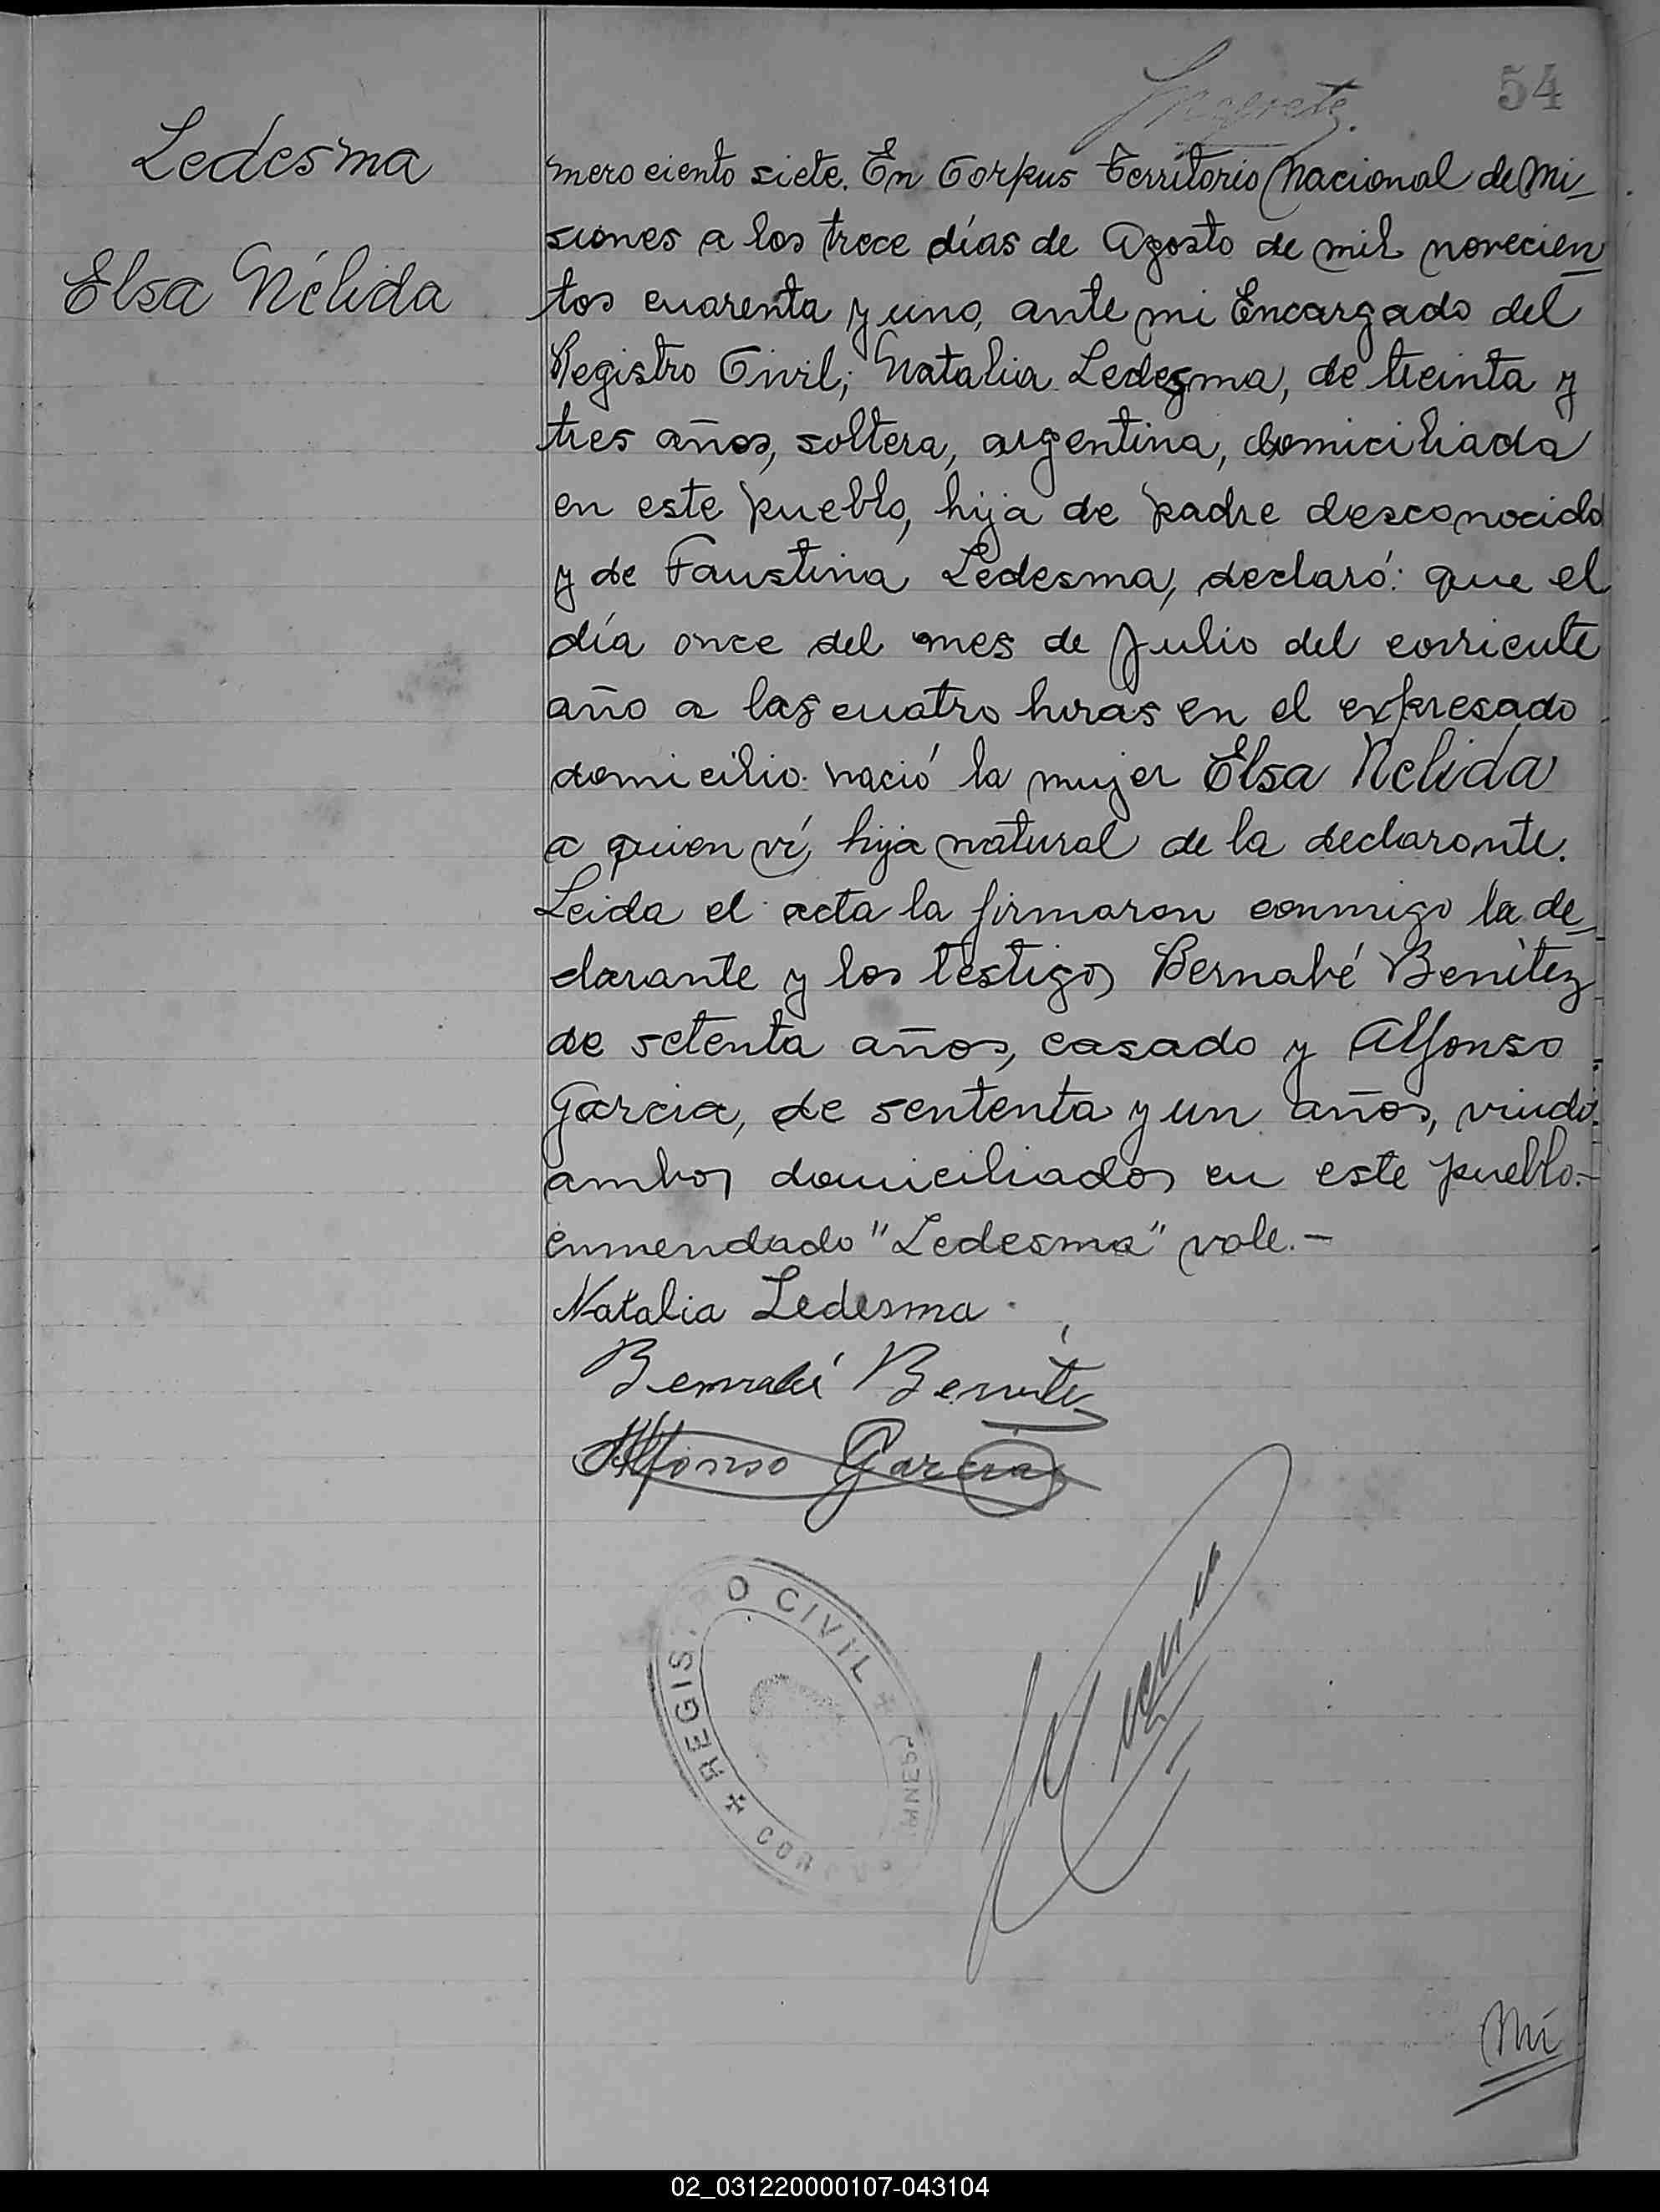 54
Ledesma
Elsa Nélida
mero ciento siete. En Corpus Territorio Nacional de Mi_
siones a los trece días de Agosto de mil novecien_
tos cuarenta y uno, ante mi Encargado del
Registro Civil; Natalia Ledesma, de treinta y
tres años, soltera, argentina, domiciliada
en este pueblo, hija de padre desconocido
y de Faustina Ledesma, declaró: que el
día once del mes de Julio del corriente
año a las cuatro horas en el expresado
domicilio nació la mujer Elsa Nelida
a quien ví, hija natural de la declarante.
Leida el acta la firmaron conmigo la de_
clarante y los testigos Bernabé Benítez
de setenta años, casado y Alfonso
Garcia, de sententa y un años, viudo
ambos domiciliados en este pueblo.-
enmendado "Ledesma" vale.-
Natalia Ledesma
Bernabé Benite
Alfonso Garcia
REGIS O CIVIL
Nú
02_031220000107-043104